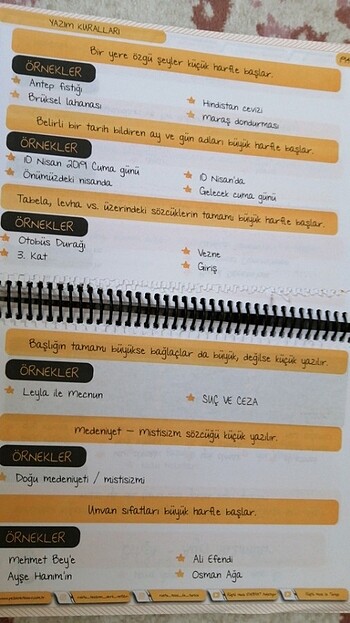 YAZIM KURALLARI
Bir yere özgü şeyler küçük harfle başlar.
ÖRNEKLER
Antep fıstığı
Brüksel lahanası
Hindistan cevizi
maraş dondurması
Belirli bir tarih bildiren ay ve gün adları büyük harfle başlar.
ÖRNEKLER
10 Nisan 2019 Cuma günü
Önümüzdeki nisanda
10 Nisan'da
Gelecek cuma günü
Tabela, levha vs. üzerindeki sözcüklerin tamamı büyük harfle başlar.
ÖRNEKLER
Otobüs Durağı
3. Kat
Vezne
Giriş
Başlığın tamamı büyükse bağlaçlar da büyük, değilse küçük yazılır.
ÖRNEKLER
Leyla ile Mecnun
SUÇ VE CEZA
Medeniyet – mistisizm sözcüğü küçük yazılır.
ÖRNEKLER
Doğu medeniyeti / mistisizmi
Unvan sıfatları büyük harfle başlar.
ÖRNEKLER
Mehmet Bey'e
Ayşe Hanım'ın
Ali Efendi
Osman Ağa